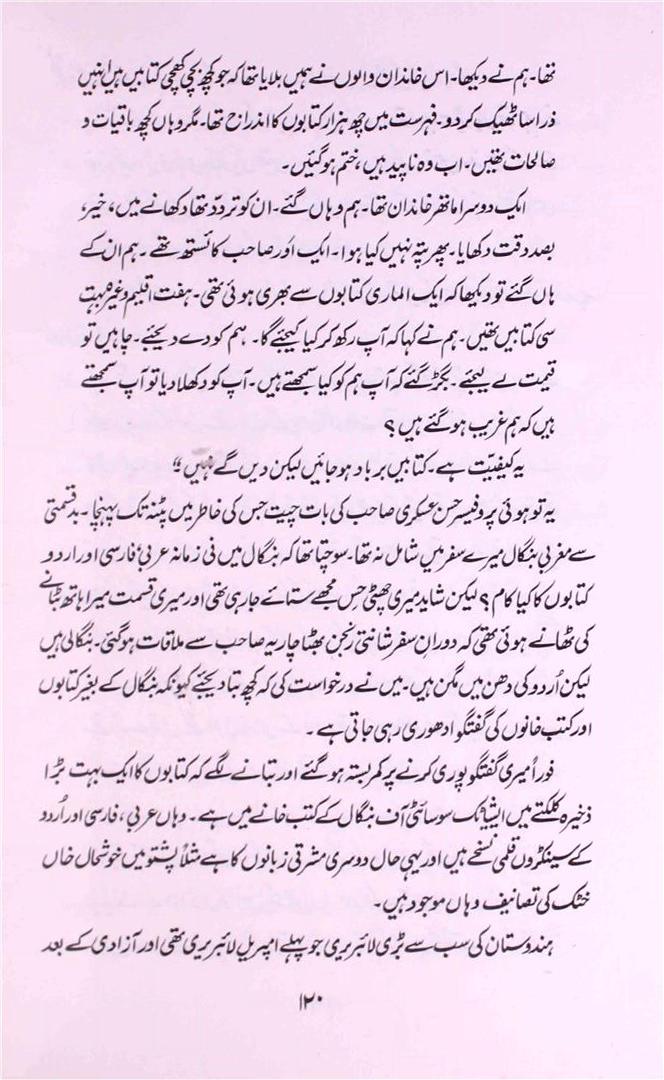 تھا۔ ہم نے دیکھا۔ اس خاندان والوں نے ہمیں بلایا تھا کہ جو کچھ بچی کھچی کتابیں ہیں انہیں
ذرا ساٹھیک کر دو۔ فہرست میں چھ ہزار کتابوں کا انذراج تھا۔ مگر وہاں کچھ باقیات و
صالحات تھیں۔ اب وہ ناپید ہیں، ختم ہو گئیں۔
ایک دوسرا ماتھر خاندان تھا۔ ہم وہاں گئے۔ ان کو تردد تھا دکھانے میں، خیر،
بصد دقت دکھایا۔ پھر پتہ نہیں کیا ہوا۔ ایک اور صاحب کائستھ تھے۔ ہم ان کے
ہاں گئے تو دیکھا کہ ایک الماری کتابوں سے بھری ہوئی تھی۔ ہفت اقلیم وغیرہ بہت
سی کتابیں تھیں۔ ہم نے کہا کہ آپ رکھ کر کیا کیجئے گا۔ ہم کو دے دیجئے۔ چاہیں تو
قیمت لے لیجئے۔ بگڑ گئے کہ آپ ہم کو کیا سمجھتے ہیں۔ آپ کو دکھلا دیا تو آپ سمجھتے
ہیں کہ ہم غریب ہو گئے ہیں؟
یہ کیفیّت ہے۔ کتابیں برباد ہو جائیں لیکن دیں گے نہیں۔“
یہ تو ہوئی پروفیسر حسن عسکری صاحب کی بات چیت جس کی خاطر میں پٹنہ تک پہنچا۔ بد قسمتی
سے مغربی بنگال میرے سفر میں شامل نہ تھا۔ سوچتا تھا کہ بنگال میں فی زمانہ عربی، فارسی اور اردو
کتابوں کا کیا کام؟ لیکن شاید میری چھٹی حِس مجھے ستائے جا رہی تھی اور میری قسمت میرا ہاتھ بٹانے
کی ٹھانے ہوئی تھی کہ دورانِ سفر شانتی رنجن بھٹاچاریہ صاحب سے ملاقات ہو گئی۔ بنگالی ہیں
لیکن اُردو کی دھن میں مگن ہیں۔ میں نے درخواست کی کہ کچھ بتا دیجئے کیونکہ بنگال کے بغیر کتابوں
اور کتب خانوں کی گفتگو ادھوری رہی جاتی ہے۔
فوراً میری گفتگو پوری کرنے پر کمر بستہ ہو گئے اور بتانے لگے کہ کتابوں کا ایک بہت بڑا
ذخیرہ کلکتے میں ایشیاٹک سوسائٹی آف بنگال کے کتب خانے میں ہے۔ وہاں عربی، فارسی اور اُردو
کے سینکڑوں قلمی نسخے ہیں اور یہی حال دوسری مشرقی زبانوں کا ہے مثلاً پشتو میں خوشحال خاں
خٹک کی تصانیف وہاں موجود ہیں۔
ہندوستان کی سب سے بڑی لائبریری جو پہلے امپریل لائبریری تھی اور آزادی کے بعد
۱۲۰